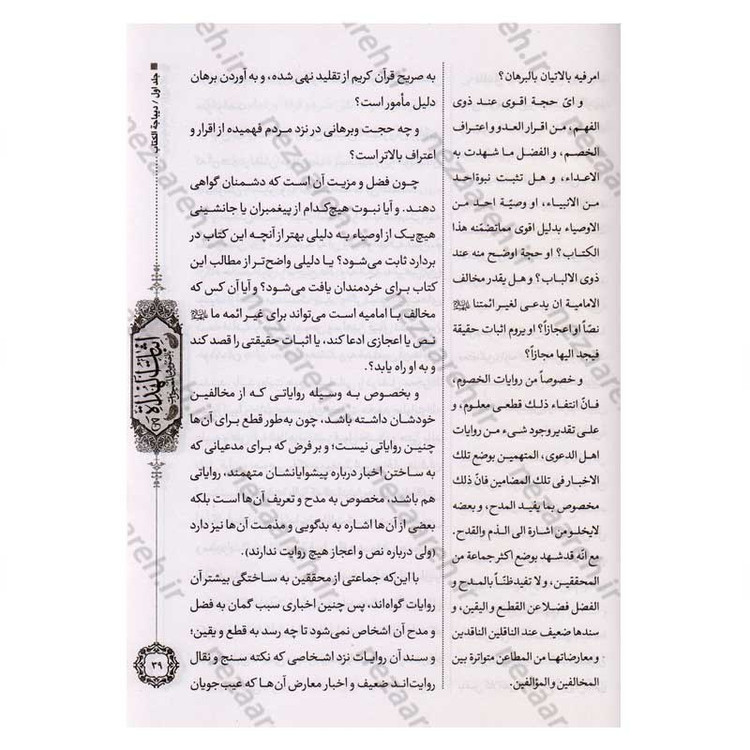 امر فیه بالاتیان بالبرهان؟
و ایّ حجة اقوی عند ذوی
الفهم، من اقرار العدو و اعتراف
الخصم، و الفضل ما شهدت به
الاعداء، و هل تثبت نبوة احد
من الانبیاء، او وصیّة احد من
الاوصیاء بدلیل اقوی مماتضمّنه هذا
الکتاب؟ او حجة اوضح منه عند
ذوی الالباب؟ و هل یقدر مخالف
الامامیة ان یدعی لغیر ائمتنا
نصّاً او اعجازاً؟ او یروم اثبات حقیقة
فیجد الیها مجازاً؟
و خصوصاً من روایات الخصوم،
فانّ انتفاء ذلک قطعی معلوم، و
علی تقدیر وجود شیء من روایات
اهل الدعوی، المتهمین بوضع تلک
الاخبار فی تلک المضامین فانّ ذلک
مخصوص بما یفید المدح، و بعضه
لایخلو من اشارة الی الذم والقدح.
مع انّه قد شهد بوضع اکثر جماعة من
المحققین، و لا تفید ظنّاً بالمدح و
الفضل فضلا عن القطع و الیقین، و
سندها ضعیف عند الناقلین الناقدین
و معارضاتها من المطاعن متواترة بین
المخالفین والمؤالفین.
به صریح قرآن کریم از تقلید نهی شده، و به آوردن برهان
دلیل مأمور است؟
و چه حجت وبرهانی در نزد مردم فهمیده از اقرار و
اعتراف بالاتر است؟
چون فضل و مزیت آن است که دشمنان گواهی
دهند. و آیا نبوت هیچ‌کدام از پیغمبران یا جانشینی
هیچ‌یک از اوصیاء به دلیلی بهتر از آنچه این کتاب در
بردارد ثابت می‌شود؟ یا دلیلی واضح‌تر از مطالب این
کتاب برای خردمندان یافت می‌شود؟ و آیا آن کس که
مخالف با امامیه است می‌تواند برای غیر ائمه ما
نص یا اعجازی ادعا کند، یا اثبات حقیقتی را قصد کند
و به او راه یابد؟.
و بخصوص به وسیله روایاتی که از مخالفین
خودشان داشته باشد، چون به‌طور قطع برای آن‌ها
چنین روایاتی نیست؛ و بر فرض که برای مدعیانی که
به ساختن اخبار درباره پیشوایانشان متهمند، روایاتی
هم باشد، مخصوص به مدح و تعریف آن‌ها است بلکه
بعضی از آن‌ها اشاره به بدگویی و مذمت آن‌ها نیز دارد
(ولی درباره نص و اعجاز هیچ روایت ندارند).
با این‌که جماعتی از محققین به ساختگی بیشتر آن
روایات گواه‌اند، پس چنین اخباری سبب گمان به فضل
و مدح آن اشخاص نمی‌شود تا چه رسد به قطع و یقین؛
و سند آن روایات نزد اشخاصی که نکته سنج و نقال
روایت‌اند ضعیف و اخبار معارض آن‌ها که عیب جویان
جلد اول / دیباجة الکتاب
اثبات الهداة
۳۹
nezaareh.ir